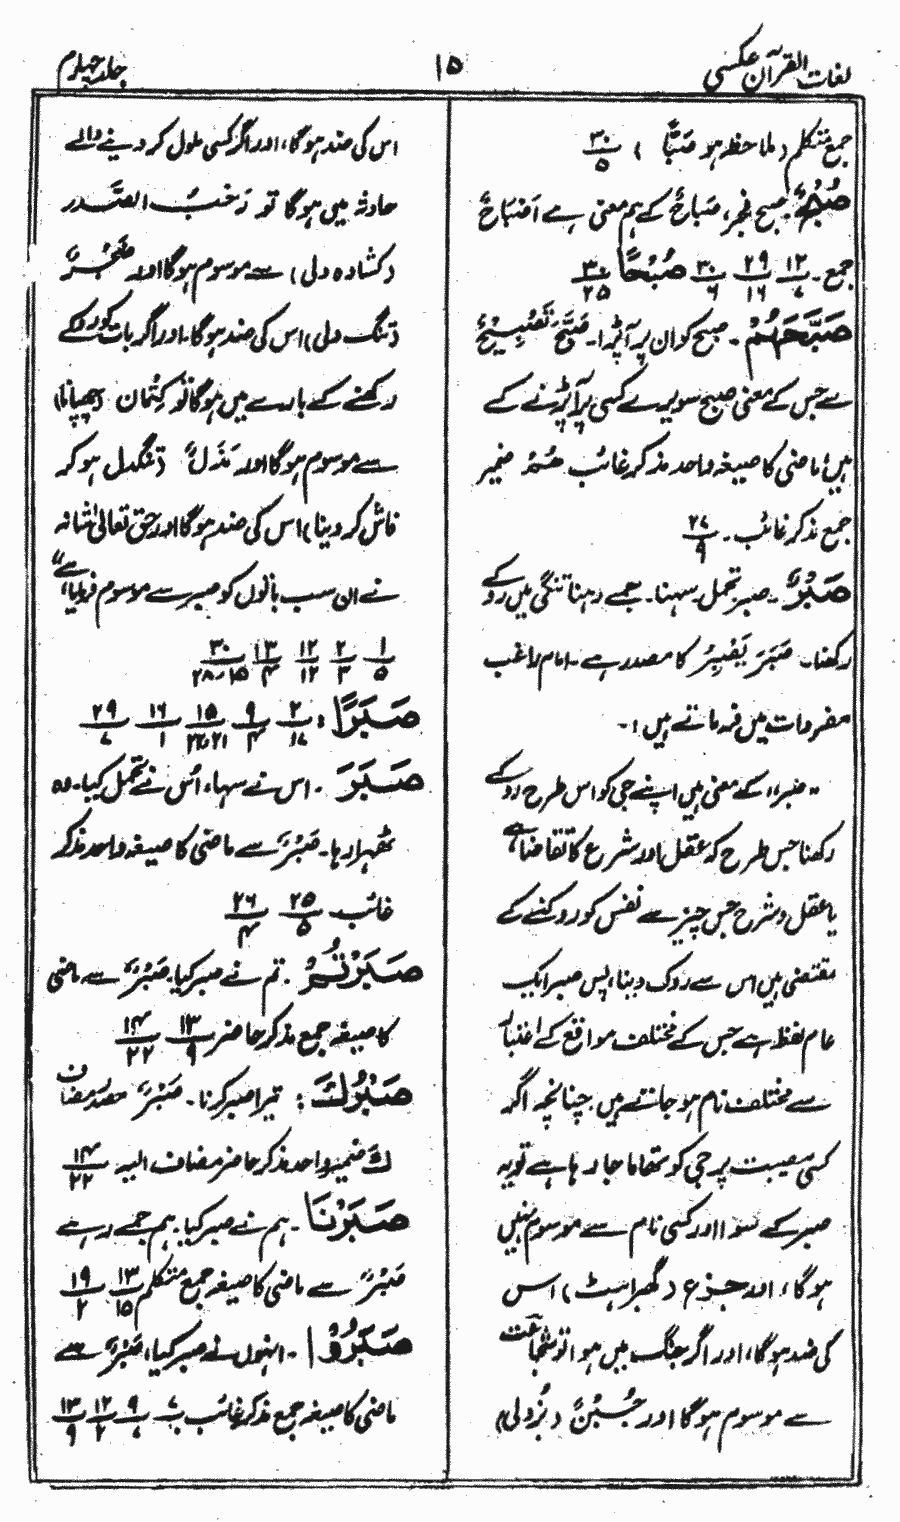 لغات القرآن عکسی
۱۵
جلد چہارم
جمع متکلم (ملاحظہ ہو صَبًّا) ۳۰/۵
صُبْحٌ۔ صبح، فجر، صَبَاحٌ کے ہم معنی ہے اَصْبَاحٌ
جمع۔ ۱۲/۷ ۲۹/۱۶ ۳۰/۶ صُبْحًا ۳۰/۲۵
صَبَّحَهُمْ۔ صبح کو ان پر آپڑا۔ صَبَّحَ تَصْبِيْحٌ
سے جس کے معنی صبح سویرے کسی پر آپڑنے کے
ہیں، ماضی کا صیغہ واحد مذکر غائب هُمْ ضمیر
جمع مذکر غائب۔ ۲۷/۹
صَبْرٌ۔ صبر، تحمل، سہنا۔ جمے رہنا تنگی میں روکے
رکھنا۔ صَبَرَ يَصْبِرُ کا مصدر ہے۔ امام راغب
مفردات میں فرماتے ہیں :-
"صبر" کے معنی ہیں اپنے جی کو اس طرح روکے
رکھنا جس طرح کہ عقل اور شرع کا تقاضا ہے
یا عقل و شرح جس چیز سے نفس کو روکنے کے
مقتضی ہیں اس سے روک دینا، پس صبر ایک
عام لفظ ہے جس کے مختلف مواقع کے اعتبار
سے مختلف نام ہو جاتے ہیں، چنانچہ اگر
کسی مصیبت پر جی کو تھاما جا رہا ہے تو یہ
صبر کے سوا اور کسی نام سے موسوم نہیں
ہوگا، اور جزع (گھبراہٹ) اس
کی ضد ہوگا، اور اگر جنگ میں ہو تو شجاعت
سے موسوم ہوگا اور جُبْنٌ (بُزدلی)
اس کی ضد ہوگا، اور اگر کسی ملول کر دینے والے
حادثہ میں ہوگا تو رَحْبُ الصَّدر
(کشادہ دلی) سے موسوم ہوگا اور ضَجَرٌ
(تنگ دلی) اس کی ضد ہوگا۔ اور اگر بات کو روکے
رکھنے کے بارے میں ہوگا تو کِتْمان (چھپانا)
سے موسوم ہوگا اور مَذْلٌ (تنگدل ہو کر
فاش کر دینا) اس کی ضد ہوگا اور حق تعالیٰ شانہ
نے ان سب باتوں کو صبر سے موسوم فرمایا ہے"
۱/۵ ۲/۳ ۱۲/۱۲ ۱۳/۴ ۳۰/۱۵،۲۸
صَبْرًا: ۲/۱۷ ۹/۴ ۱۵/۲۱،۲۲ ۱۶/۱ ۲۹/۷
صَبَرَ۔ اس نے سہا، اُس نے تحمل کیا۔ وہ
ٹھہرا رہا۔ صَبْرٌ سے ماضی کا صیغہ واحد مذکر
غائب۔ ۲۵/۵ ۲۶/۴
صَبَرْتُمْ۔ تم نے صبر کیا۔ صَبْرٌ سے ماضی
کا صیغہ جمع مذکر حاضر ۱۳/۹ ۱۴/۲۲
صَبْرُكَ: تیرا صبر کرنا۔ صَبْرٌ مصدر مضاف
كَ ضمیر واحد مذکر حاضر مضاف الیہ ۱۴/۲۲
صَبَرْنَا۔ ہم نے صبر کیا۔ ہم جمے رہے
صَبْرٌ سے ماضی کا صیغہ جمع متکلم ۱۳/۱۵ ۱۹/۲
صَبَرُوْا۔ انہوں نے صبر کیا، صَبْرٌ سے
ماضی کا صیغہ جمع مذکر غائب ۹/۷ ۱۲/۲ ۱۳/۹